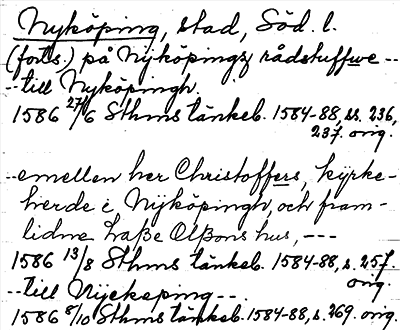 Nyköping, stad, Söd. l.
(forts.) på Nyköpingz rådstuffwe --
-- till Nyköpingh.
1586 27/6 Sthms tänkeb. 1584-88, ss. 236,
237. orig.
-- emellen her Christoffers, kyrke-
herde i Nyköpingh, och fram-
lidne Laße Olßons hus, ---
1586 13/8 Sthms tänkeb. 1584-88, s. 257.
orig.
-- till Nyckeping --
1586 8/10 Sthms tänkeb. 1584-88, s. 269. orig.